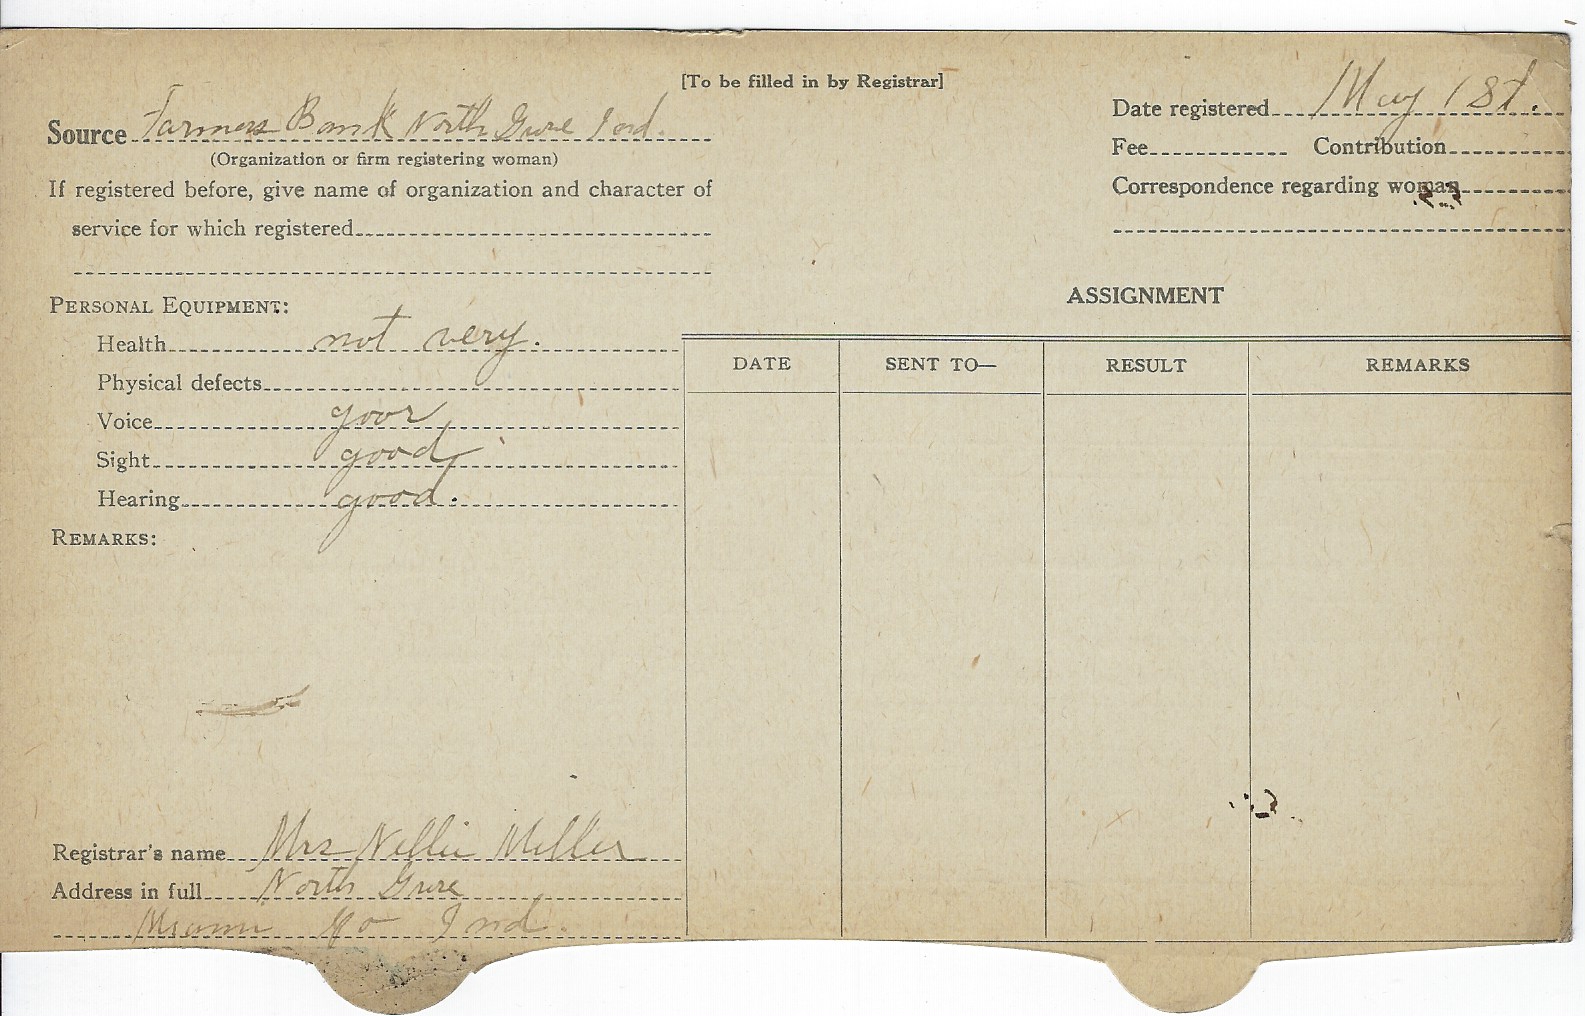 [To be filled in by Registrar]
Source Farmers Bank North Grove Ind.
(Organization or firm registering woman)
If registered before, give name of organization and character of
service for which registered
Date registered May 1st.
Fee Contribution
Correspondence regarding woman
PERSONAL EQUIPMENT:
Health not very.
Physical defects
Voice
Sight good
Hearing good.
REMARKS:
ASSIGNMENT
DATE SENT TO— RESULT REMARKS
Registrar's name Mrs Nellie Miller
Address in full North Grove
Miami Co Ind.